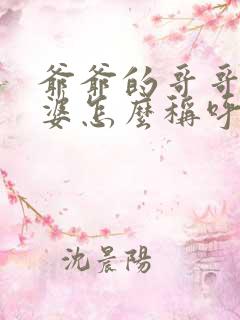 爺爺的哥哥
婆怎麼稱呼
沈晨陽